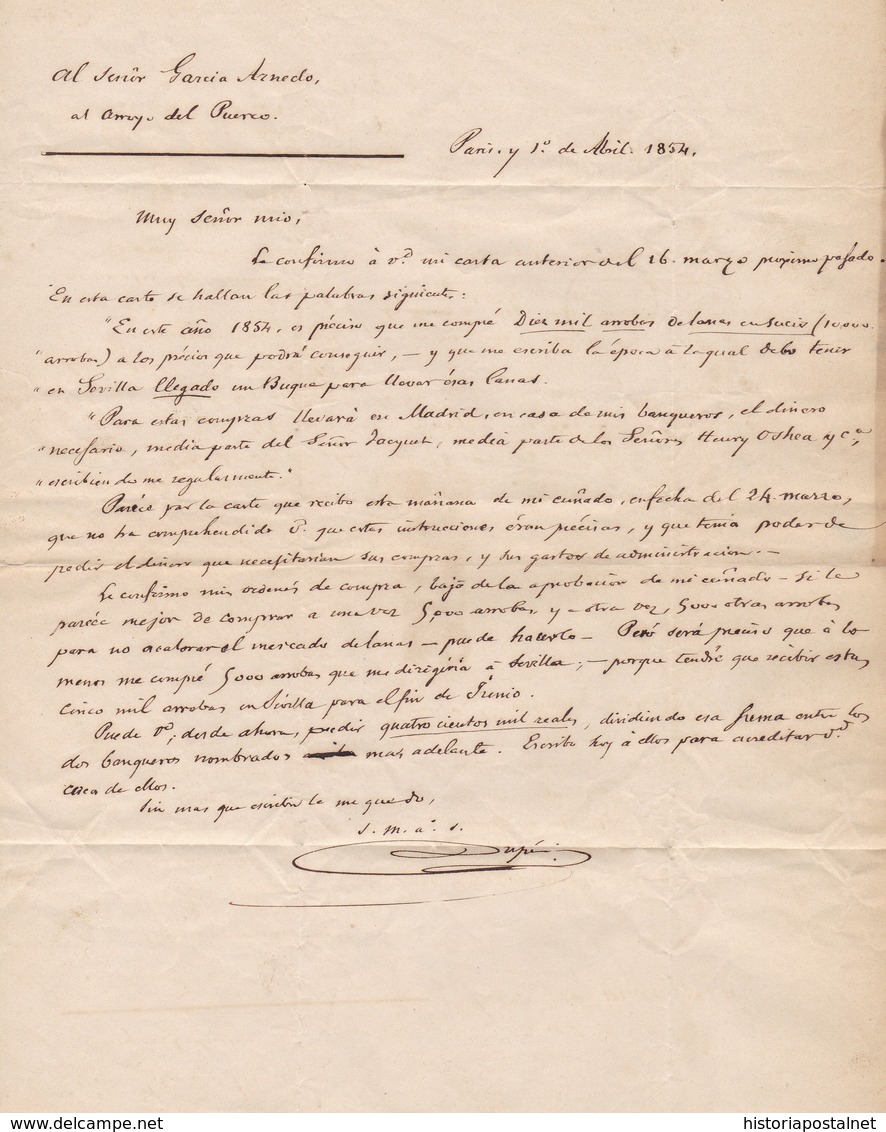 Al Señor Garcia Arnedo,
al Arroyo del Puerco.
Paris. y 1º de Abril. 1854.
Muy Señor mio,
Le confirmo à Vd mi carta anterior del 16. marzo proximo pasado.
En esta carta se hallan las palabras siguiente:
"En este año 1854, es préciso que me compré Diez mil arrobas de lanas en sucio (10,000
"arrobas) a los précios que podrá conseguir, — y que me escriba la época à la qual debo tener
"en Sevilla llegado un Buque para llevar ésas lanas.
"Para estas compras llevará en Madrid, en casa de mis banqueros, el dinero
"necesario, media parte del Señor Jacquet, media parte de los Señores Henry Oshea y Cª,
"escribiendo me regularmente."
Paréce par la carte que recibo esta mañana de mi cuñado, en fecha del 24. marzo,
que no ha comprehendido V. que estas instruciones éran précisas, y que tenia poder de
pedir el dinero que necesitarian sus compras, y sus gastos de administracion. —
Le confirmo mis ordenés de compra, bajo de la aprobacion de mi cuñado — si le
paréce mejor de comprar a una vez 5,000 arrobas, y a otra vez, 5,000 otras arrobas
para no acalorar el mercado de lanas — puede hacerlo — Peró será préciso que à lo
menos me compré 5,000 arrobas que me dirigiria à Sevilla; — porque tendré que recibir estas
cinco mil arrobas en Sévilla para el fin de Junio.
Puede Vd, desde ahora, pedir quatro cientos mil reales, dividiendo esa suma entre los
dos banqueros nombrados mas adelante. Escribo hoy à ellos para acreditar Vd
cerca de ellos.
Sin mas que escribir le me quedo,
S. M. aº. S.
Dupré
historiapostalnet
www.delcampe.net